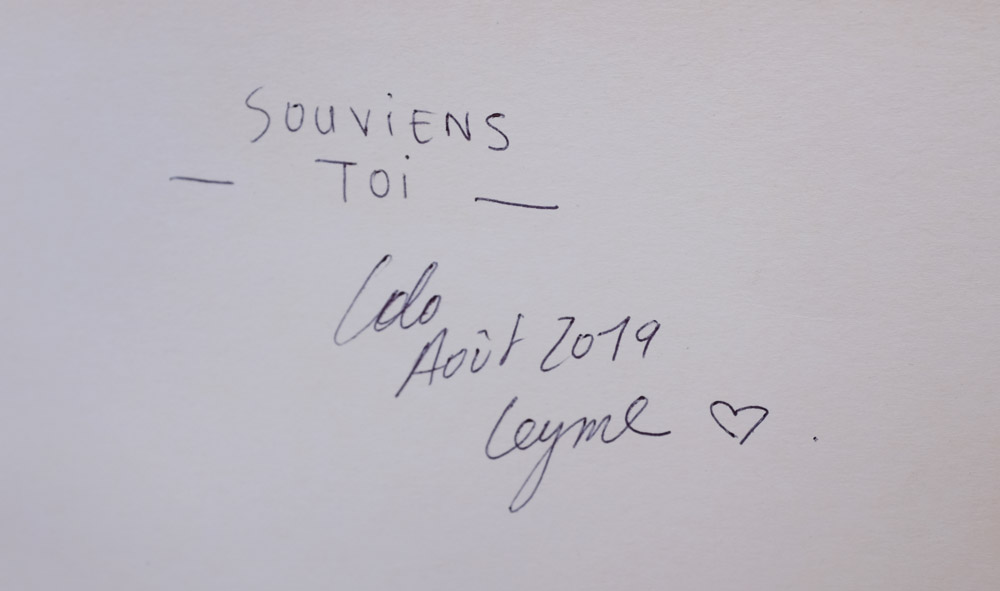 SOUViENS
— TOi —
Colo
Août 2019
Leyme ♡.